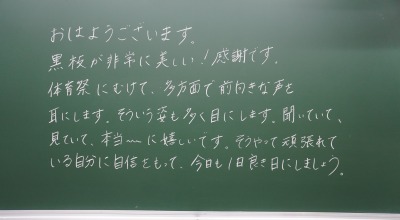 おはようございます。
黒板が非常に美しい！感謝です。
体育祭にむけて、多方面で前向きな声を
耳にします。そういう姿も多く目にします。聞いていて、
見ていて、本当〜〜に嬉しいです。そうやって頑張れて
いる自分に自信をもって、今日も1日良き日にしましょう。